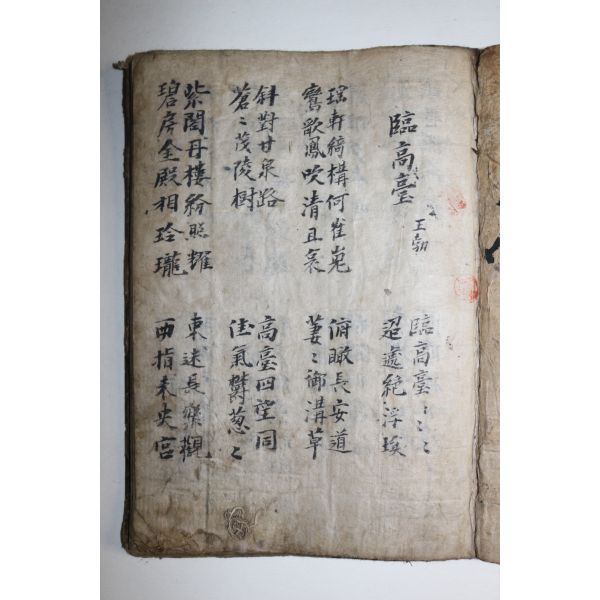 臨高臺
王勃
臨高臺〻〻〻
迢遞絕浮埃
瑤軒綺構何崔嵬
鸞歌鳳吹清且哀
俯瞰長安道
萋〻御溝草
斜對甘泉路
蒼〻茂陵樹
高臺四望同
佳氣鬱葱〻
紫閣丹樓紛照耀
碧房金殿相玲瓏
東迷長樂觀
西指未央宮